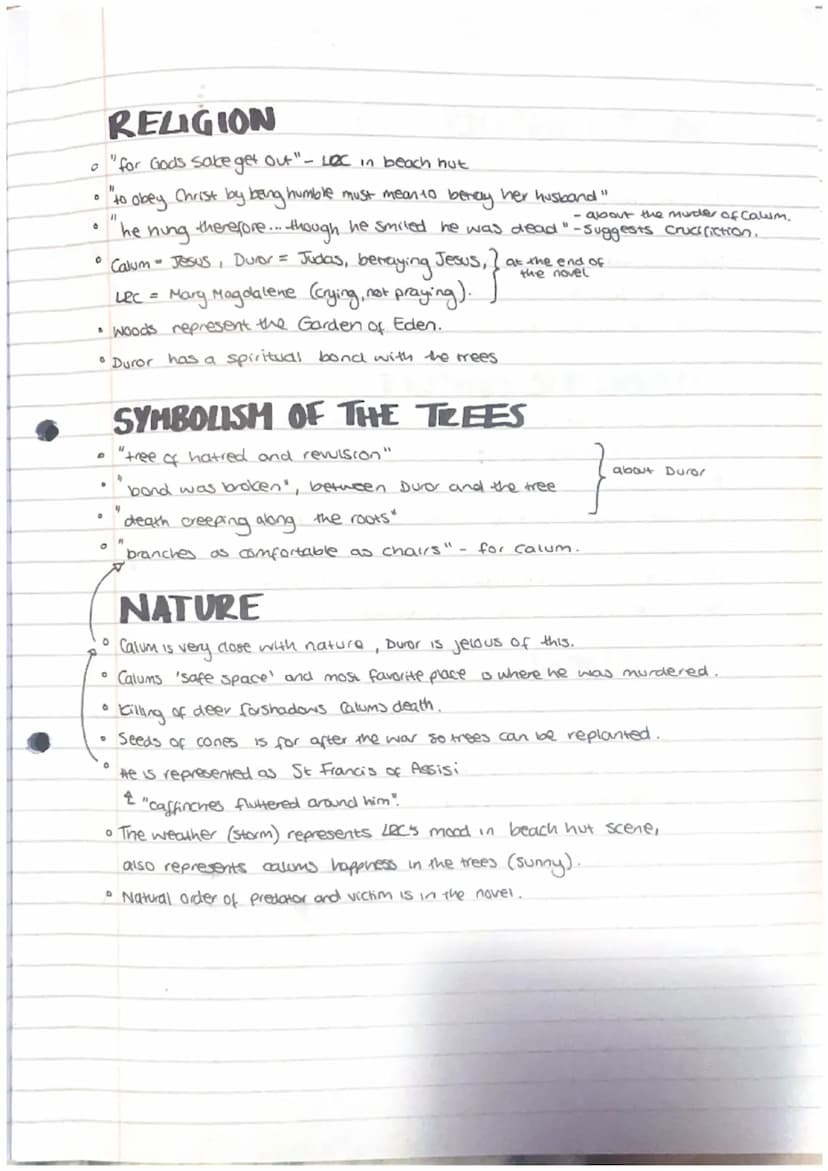 RELIGION
"for Gods sake get out" - LRC in beach hut
"to obey Christ by being humble must mean to betray her husband"
- about the murder of Calum.
"he hung therefore... though he smiled he was dead" - suggests crucifiction.
Calum = Jesus, Duror = Judas, betraying Jesus, } at the end of
the novel
LRC = Mary Magdalene (crying, not praying).
Woods represent the Garden of Eden.
Duror has a spiritual bond with the trees
SYMBOLISM OF THE TREES
"tree of hatred and revulsion"
"bond was broken", between Duror and the tree } about Duror
"death creeping along the roots"
"branches as comfortable as chairs" - for Calum.
NATURE
Calum is very close with nature, Duror is jelous of this.
Calums 'safe space' and most favorite place is where he was murdered.
Killing of deer forshadows Calums death.
Seeds of cones is for after the war so trees can be replanted.
He is represented as St Francis of Assisi
"caffinches fluttered around him".
The weather (storm) represents LRC's mood in beach hut scene,
also represents calums happness in the trees (sunny).
Natural order of predator and victim is in the novel.